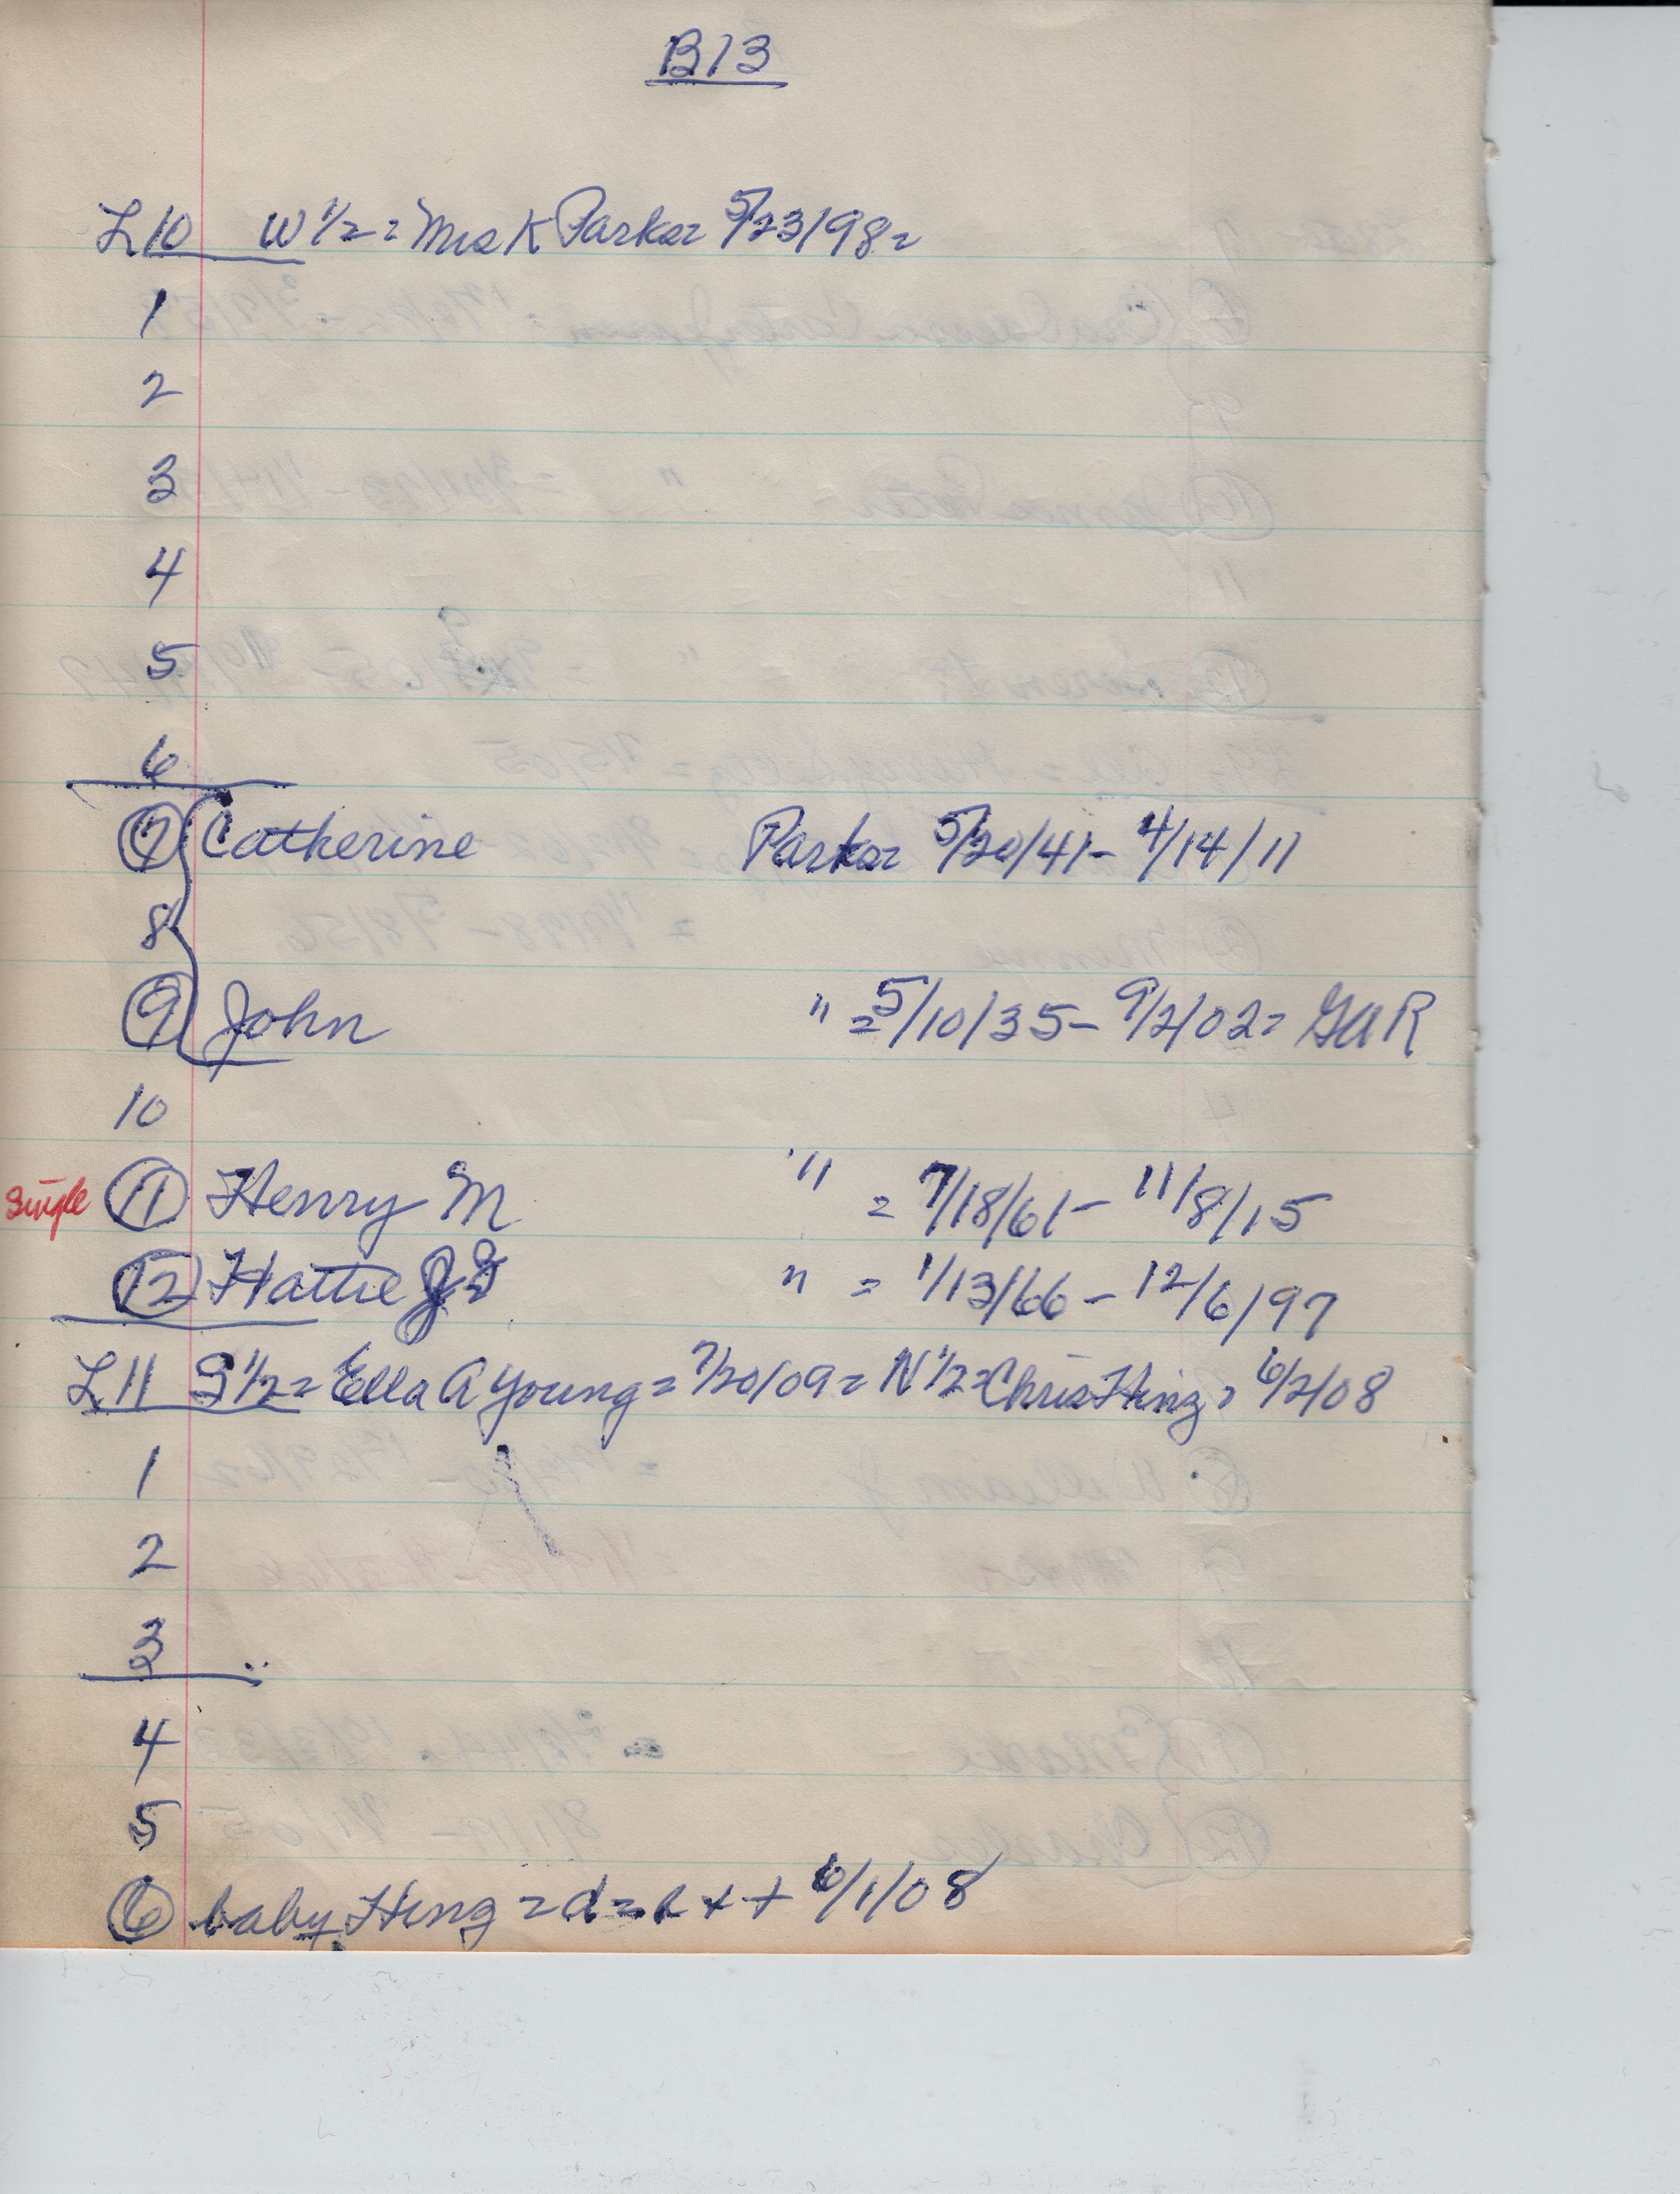 B13
L10 W 1/2 = Mrs K Parker 5/23/98 =
1
2
3
4
5
6
7 Catherine Parker 5/20/41 - 4/14/11
8
9 John " = 5/10/35 - 9/2/02 = GAR
10
Single 11 Henry M " = 7/18/61 - 11/8/15
12 Hattie " = 1/13/66 - 12/6/97
L11 S 1/2 = Ella A Young = 7/20/09 = N 1/2 = Chris Hinz = 6/2/08
1
2
3
4
5
6 baby Hinz = d = 6/1/08